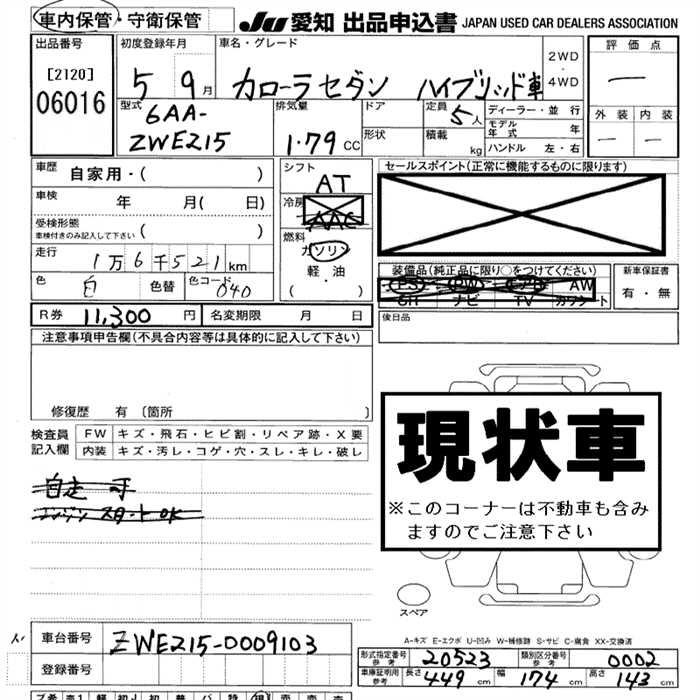 車内保管・守衛保管 JU 愛知 出品申込書 JAPAN USED CAR DEALERS ASSOCIATION
出品番号 初度登録年月 車名・グレード 評価点
[2120] 5 9月 カローラセダン ハイブリッド車 2WD・4WD —
06016 型式 排気量 ドア 定員 5人 ディーラー・並行 外装 内装
6AA-ZWE215 1.79 CC 形状 積載 kg モデル年式 年 — —
ハンドル 左・右
車歴 自家用・( ) シフト AT セールスポイント(正常に機能するものに限ります)
車検 年 月( 日) 冷房 AAC
受検形態 車検付きのみ記入して下さい ( ) 燃料 ガソリン
走行 1万6千521km 軽・油
色 白 色替 色コード 040 ( ・ )
装備品(純正品に限り○をつけてください) 新車保証書
PS PW エアB AW 有・無
SR ナビ TV カワシート
R券 11,300円 名変期限 月 日 後日品
注意事項申告欄(不具合内容等は具体的に記入して下さい)
修復歴 有 [箇所 ]
検査員記入欄 FW キズ・飛石・ヒビ割・リペア跡・X要
内装 キズ・汚レ・コゲ・穴・スレ・キレ・破レ
現状車
※このコーナーは不動車も含み
ますのでご注意下さい
自走 可
エンジン スタート OK
スペア
A-キズ E-エクボ U-凹み W-補修跡 S-サビ C-腐食 XX-交換済
車台番号 ZWE215-0009103
登録番号
形式指定番号 参考 20523 類別区分番号 参考 0002
車庫証明用 参考 長さ 449cm 幅 174cm 高さ 143cm